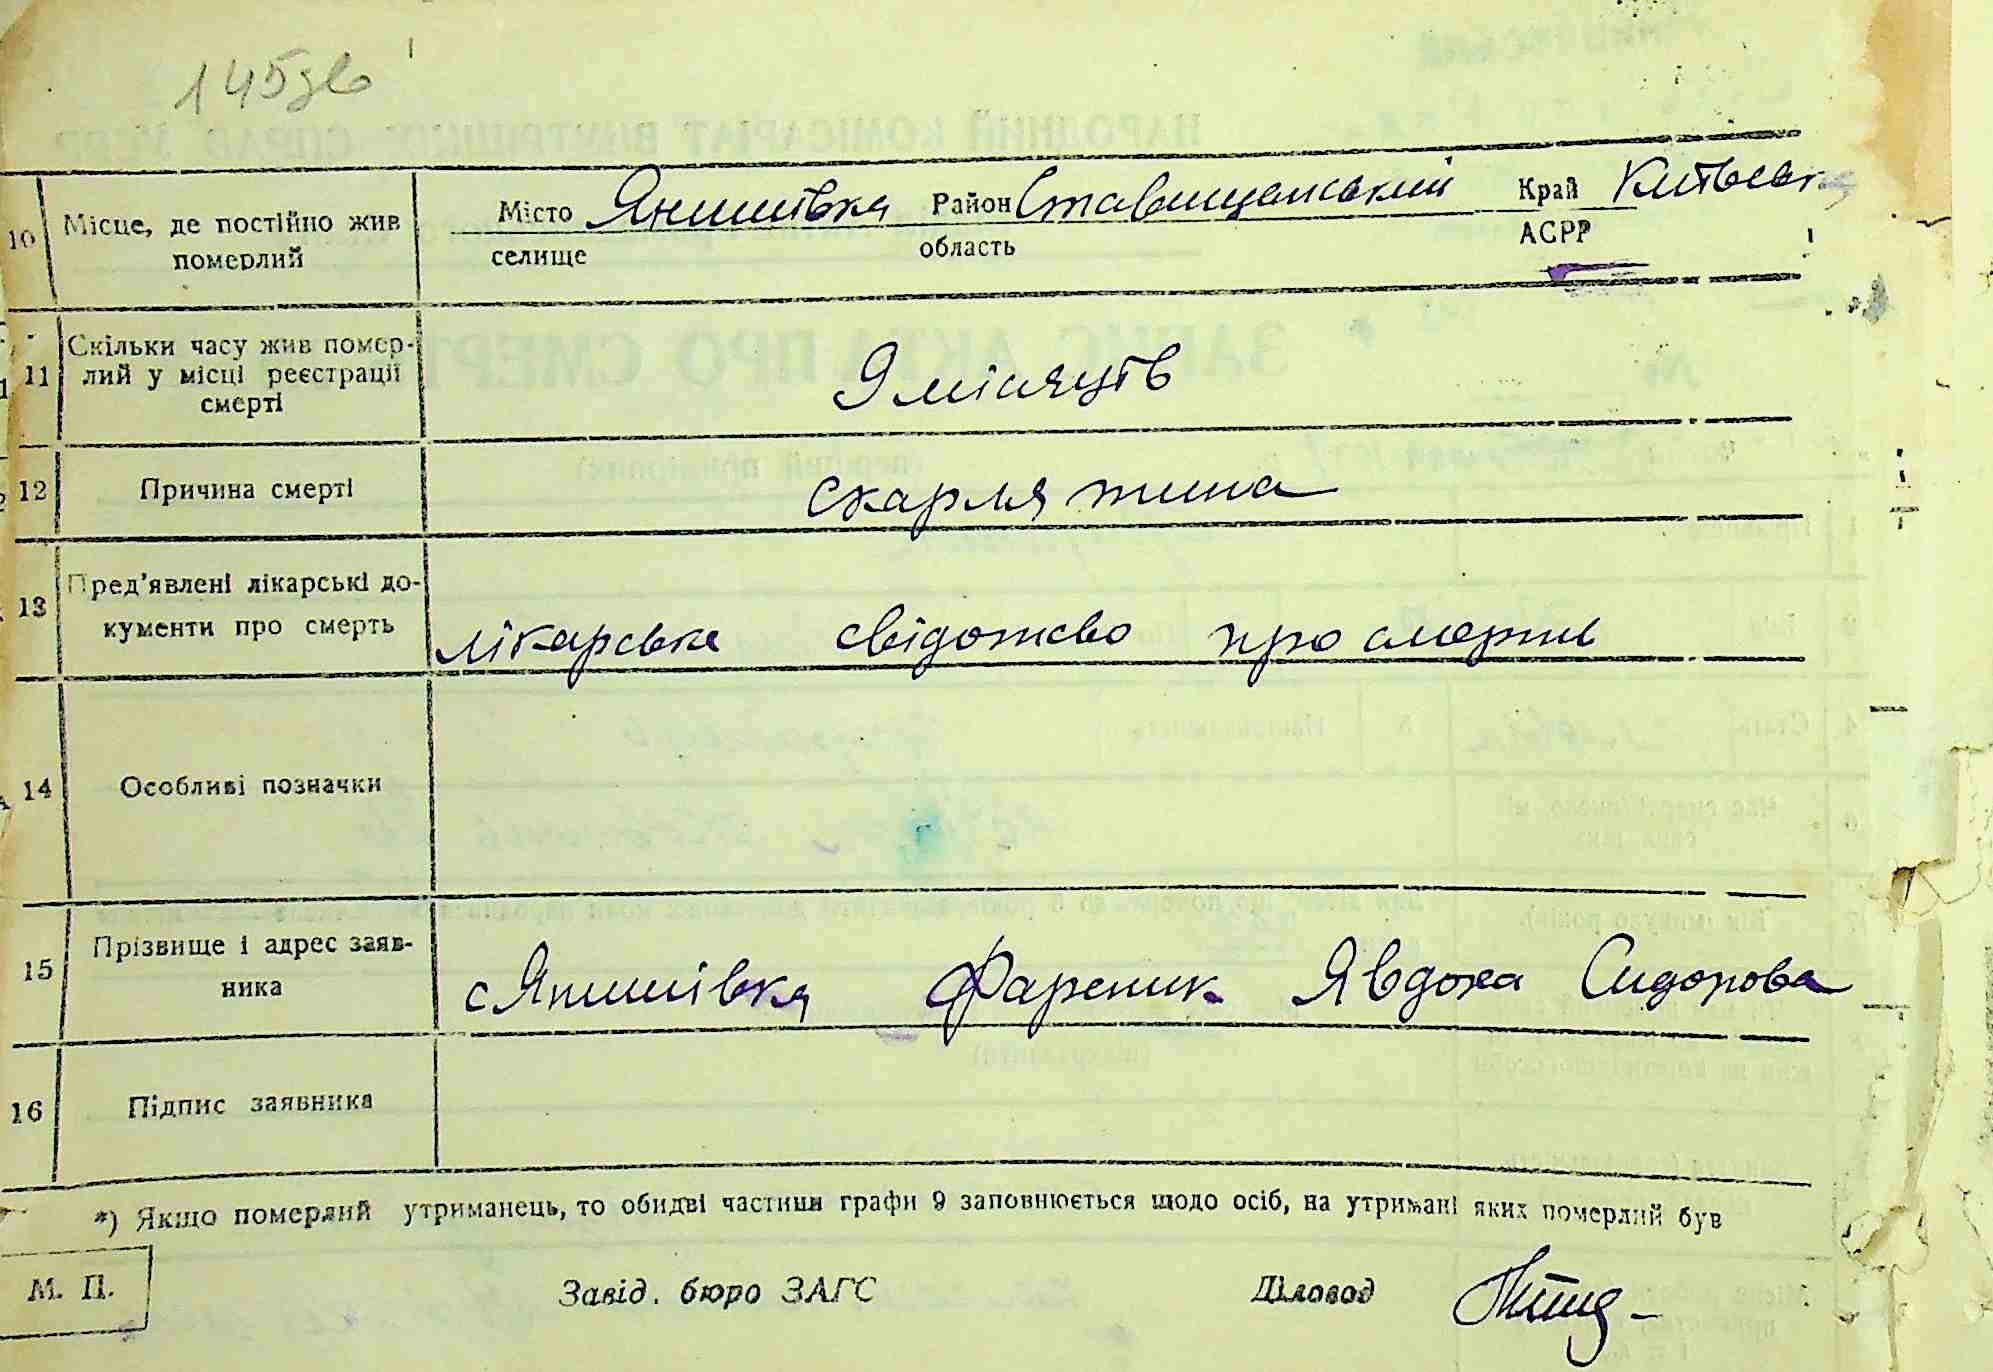 145зв
10 Місце, де постійно жив померлий
Місто Янишівка Район Ставищанський Край Київськ
селище область АСРР
11 Скільки часу жив помер-
лий у місці реєстрації
смерті
9 місяців
12 Причина смерті скарлятина
13 Пред'явлені лікарські до-
кументи про смерть
лікарське свідотсво про смерть
14 Особливі позначки
15 Прізвище і адрес заяв-
ника
с Янишівка Фареник Явдоха Сидорова
16 Підпис заявника
*) Якщо померлий утриманець, то обидві частини графи 9 заповнюється щодо осіб, на утримані яких померлий був
М. П. Завід. бюро ЗАГС Діловод